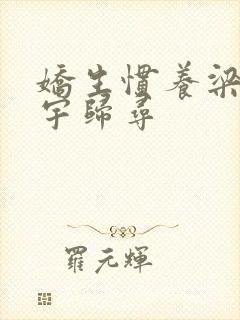 嬌生慣養梁
宇歸尋
羅元輝